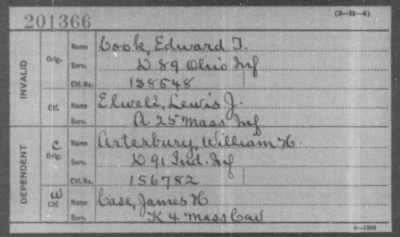 201366 (3-21-4)
INVALID Orig. Name Cook, Edward T.
Serv. D 89 Ohio Inf
Ctf. No. 138548
Ctf. Name Elwell, Lewis J.
Serv. A 25 Mass Inf
DEPENDENT C Orig. Name Arterbury, William H.
Serv. D 91 Ind. Inf
Ctf. No. 156782
W Ctf. Name Case, James H
Serv. K 4 Mass Cav